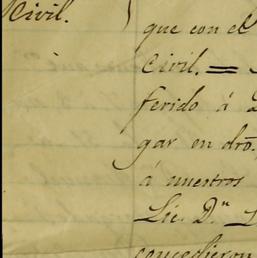 Civil.
que con el
Civil. =
ferido á
gar en dro.
á nuestros
Lic. Dn
concedieron